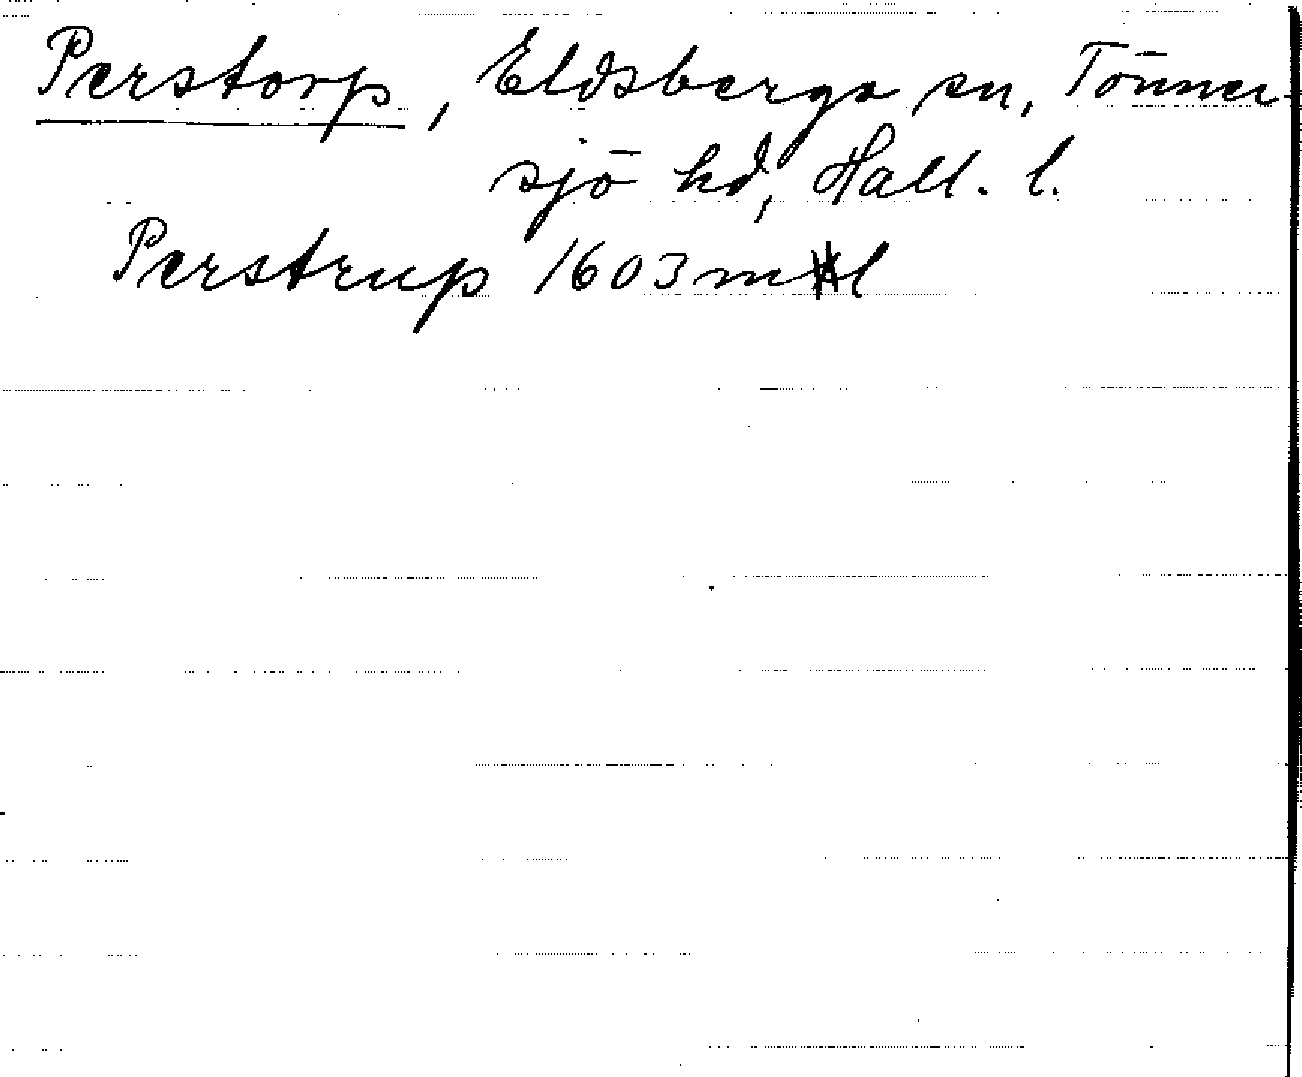 Perstorp, Eldsberga sn, Tönner-
sjö hd, Hall. l.
Perstrup 1603